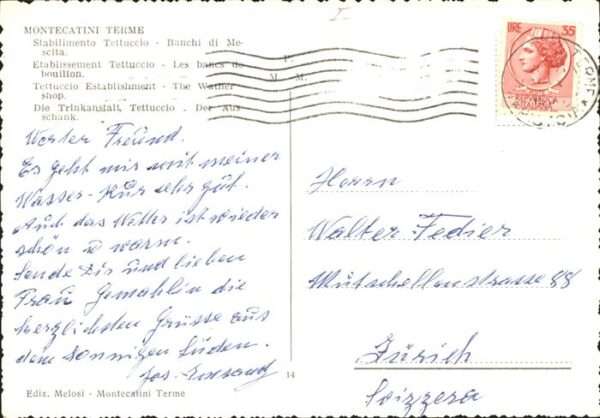 MONTECATINI TERME
Stabilimento Tettuccio - Banchi di Mescita.
Etablissement Tettuccio - Les bancs de bouillon.
Tettuccio Establishment - The Wather shop.
Die Trinkanstalt, Tettuccio - Der Ausschank.
LIRE 35
Werter Freund.
Es geht mir mit meiner
Wasser-Kur sehr gut.
Auch das Wetter ist wieder
schön u warm.
Sende Dir und lieben
Frau Gemahlin die
herzlichsten Grüsse aus
dem sonnigen Süden.
Jos.
Herrn
Walter Fedier
Mutschellenstrasse 88
Zürich
Svizzera
14
Ediz. Melosi - Montecatini Terme